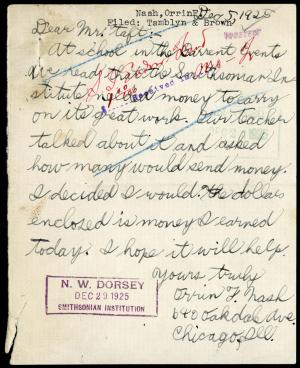 Nash, Orrin F.
Filed: Tamblyn & Brown
Dec 5, 1925
Dear Mr. Taft:-
At school in the Current Events
we read that the Smithsonian In-
stitute needed money to carry
on its great work. Our teacher
talked about it and asked
how many would send money.
I decided I would. The dollar
enclosed is money I earned
today. I hope it will help.
Yours truly
Orrin F. Nash
640 Oakdale Ave.
Chicago, Ill.
N. W. DORSEY
DEC 29 1925
SMITHSONIAN INSTITUTION